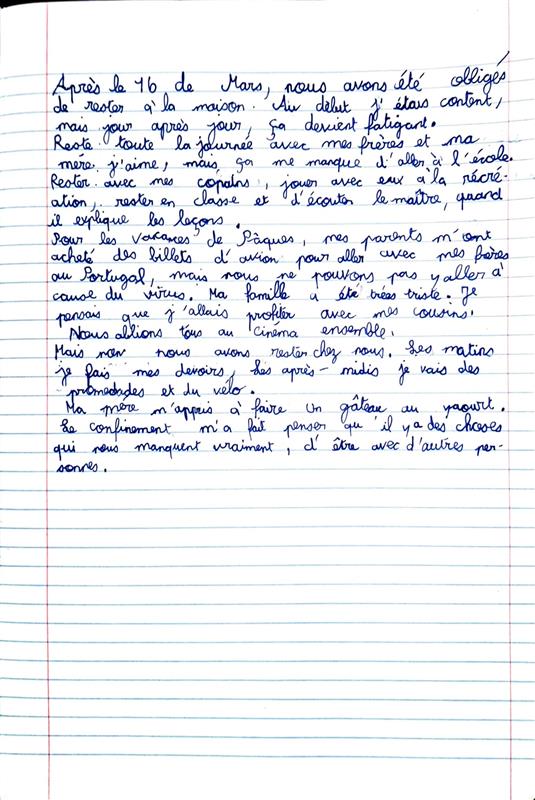 Après le 16 de Mars, nous avons été obligés
de rester à la maison. Au début j'étais content,
mais jour après jour, ça devient fatigant.
Reste toute la journée avec mes frères et ma
mère j'aime, mais ça me manque d'aller à l'école.
Rester avec mes copains, jouer avec eux à la récré-
ation, rester en classe et d'écouter le maître, quand
il explique les leçons.
Pour les vacances de Pâques, mes parents m'ont
acheté des billets d'avion pour aller avec mes frères
au Portugal, mais nous ne pouvons pas y aller à
cause du virus. Ma famille a été trées triste. Je
pensais que j'allais profiter avec mes cousins.
Nous allions tous au cinéma ensemble.
Mais non nous avons rester chez nous. Les matins
je fais mes devoirs, Les après-midis je vais des
promedades et du vélo.
Ma mère m'appris à faire un gâteau au yaourt.
Le confinement m'a fait penser qu'il y a des choses
qui nous manquent vraiment, d'être avec d'autres per-
sonnes.